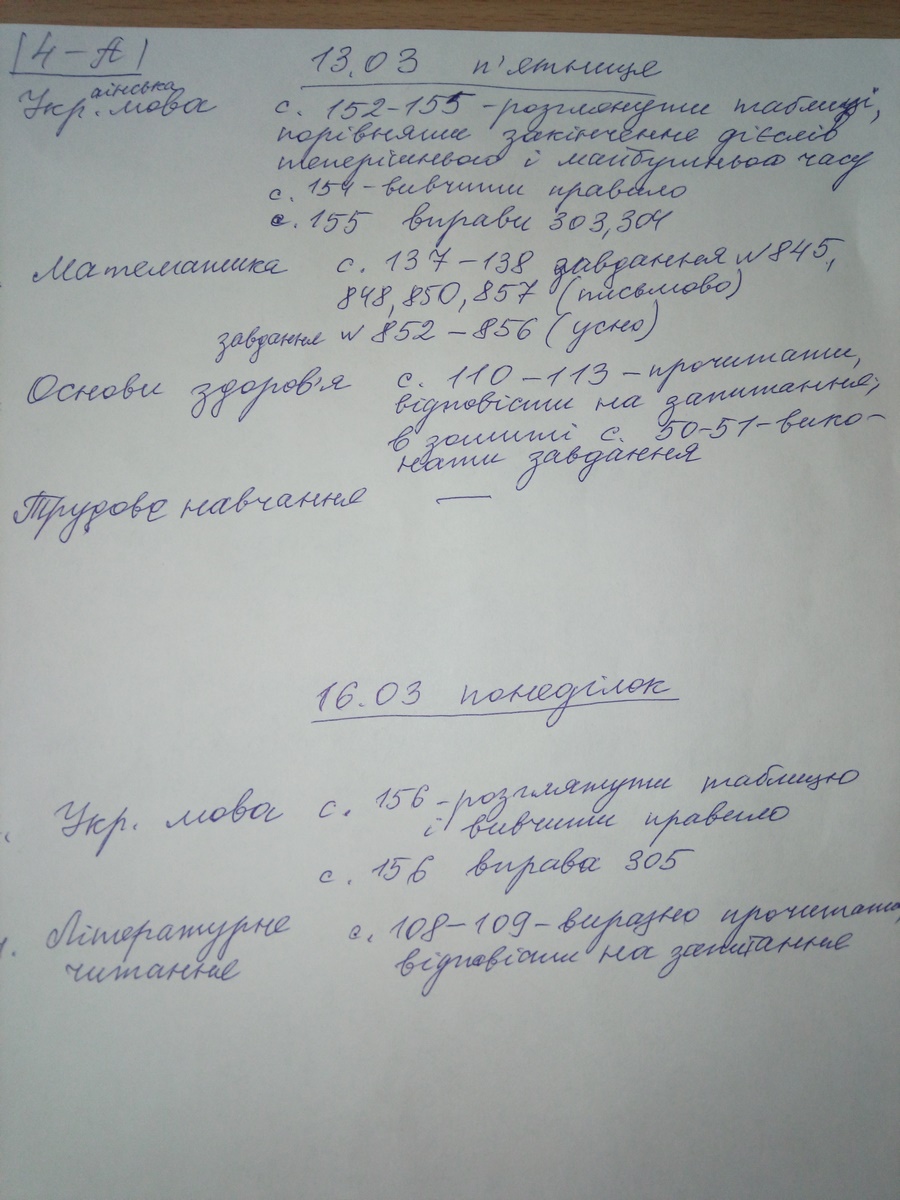 4-А
13.03 п'ятниця
Українська мова с. 152-155 - розглянути таблиці,
порівняти закінчення дієслів
теперішнього і майбутнього часу
с. 154 - вивчити правило
с. 155 вправи 303, 304
Математика с. 137-138 завдання №845,
848, 850, 857 (письмово)
завдання №852-856 (усно)
Основи здоров'я с. 110-113 - прочитати,
відповісти на запитання;
в зошиті с. 50-51 - вико-
нати завдання
Трудове навчання —
16.03 понеділок
Укр. мова с. 156 - розглянути таблицю
і вивчити правило
с. 156 вправа 305
Літературне с. 108-109 - виразно прочитати,
читання відповісти на запитання